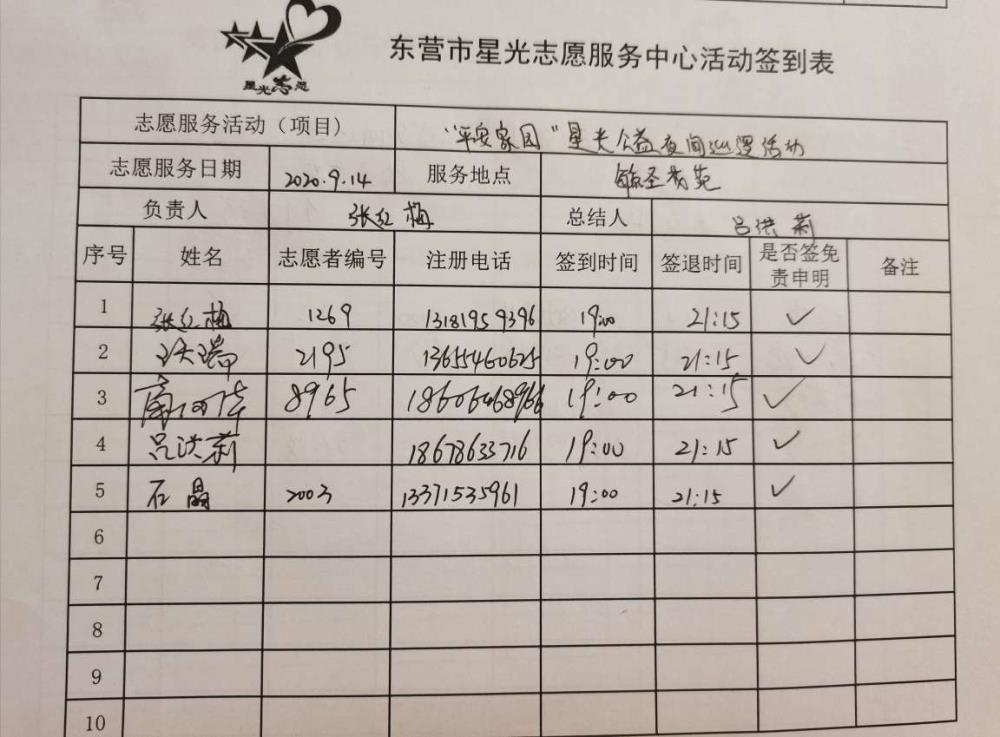 星光志愿
东营市星光志愿服务中心活动签到表
志愿服务活动（项目） "平安家园"星光公益夜间巡逻活动
志愿服务日期 2020.9.14 服务地点
负责人 张红梅 总结人 吕洪莉
序号 姓名 志愿者编号 注册电话 签到时间 签退时间 是否签免责申明 备注
1 张红梅 1269 13181959396 19:00 21:15 ✓
2 2195 13655460625 19:00 21:15 ✓
3 8965 18606468966 19:00 21:15 ✓
4 吕洪莉 18678633716 19:00 21:15 ✓
5 石晶 2003 13371535961 19:00 21:15 ✓
6
7
8
9
10